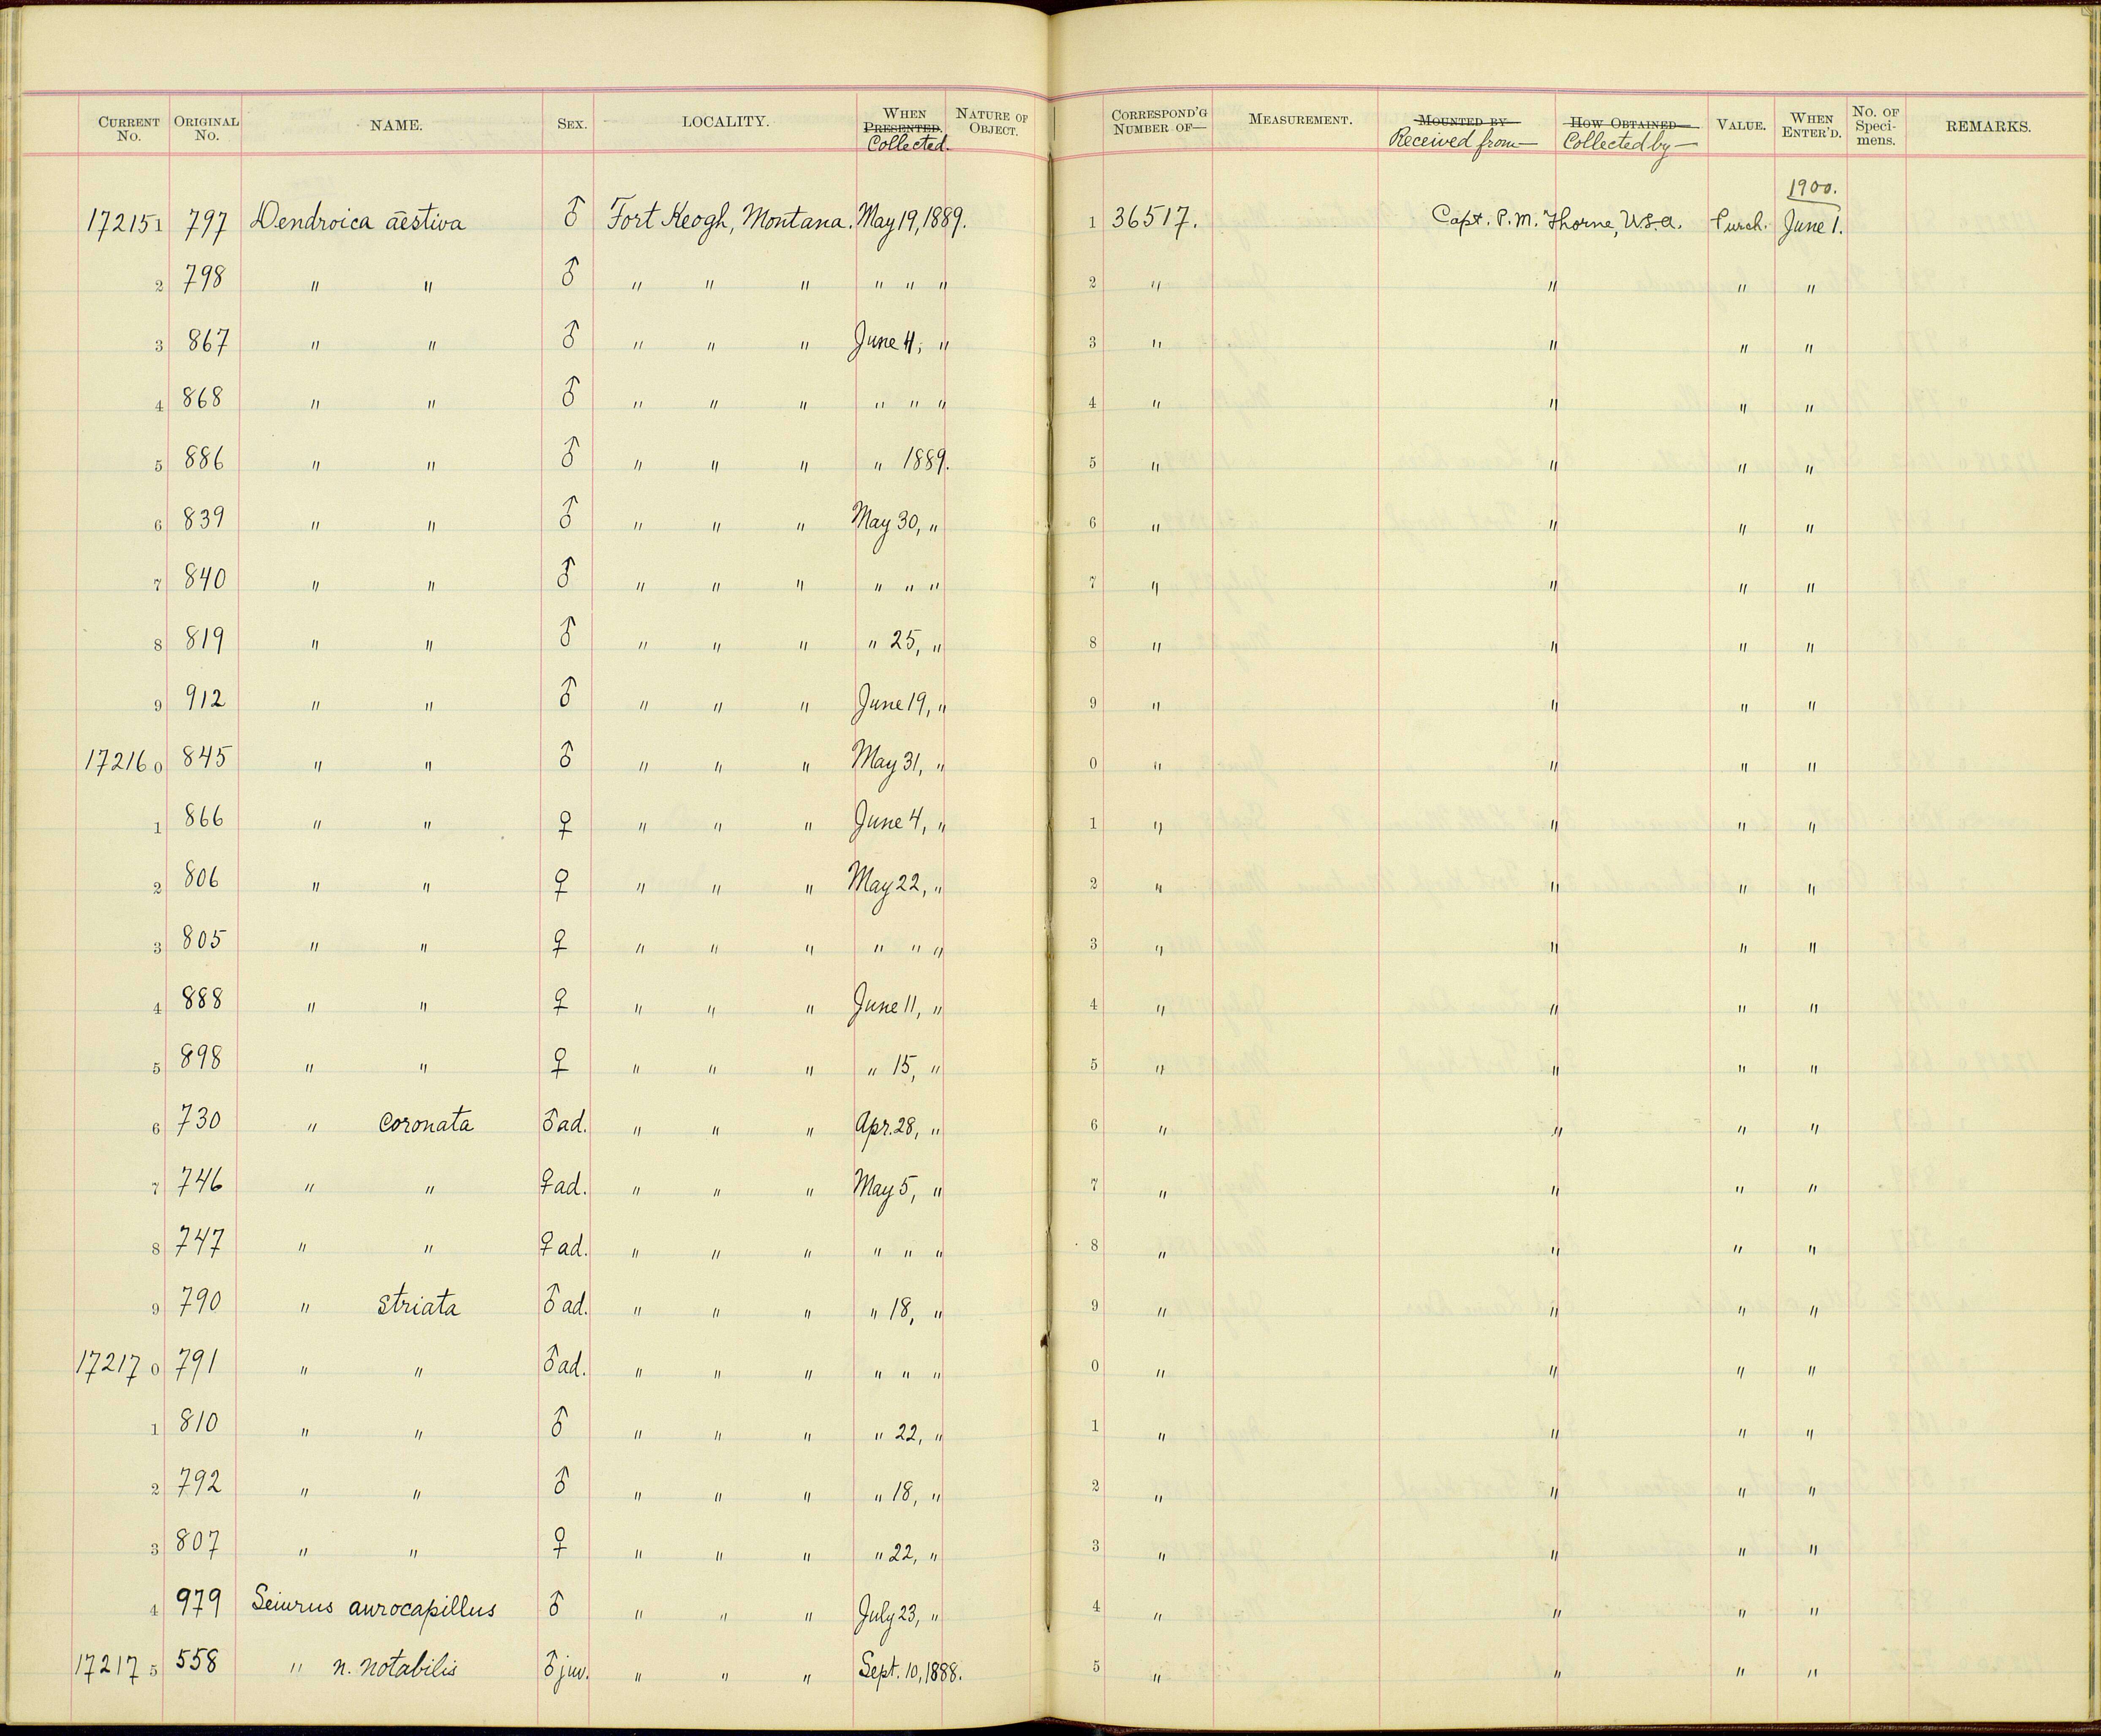 CURRENT No. ORIGINAL No. NAME. SEX. LOCALITY. WHEN PRESENTED. Collected. NATURE OF OBJECT. CORRESPOND'G NUMBER OF— MEASUREMENT. MOUNTED BY— Received from— HOW OBTAINED— Collected by— VALUE. WHEN ENTER'D. No. OF Speci-mens. REMARKS.
1900.
172151 797 Dendroica aestiva ♂ Fort Keogh, Montana. May 19, 1889. 1 36517. Capt. P. M. Thorne, U.S.A. Purch. June 1.
2 798 " " ♂ " " " " " " 2 " " " "
3 867 " " ♂ " " " June 4, " 3 " " " "
4 868 " " ♂ " " " " " " 4 " " " "
5 886 " " ♂ " " " " 1889. 5 " " " "
6 839 " " ♂ " " " May 30, " 6 " " " "
7 840 " " ♂ " " " " " " 7 " " " "
8 819 " " ♂ " " " " 25, " 8 " " " "
9 912 " " ♂ " " " June 19, " 9 " " " "
172160 845 " " ♂ " " " May 31, " 0 " " " "
1 866 " " ♀ " " " June 4, " 1 " " " "
2 806 " " ♀ " " " May 22, " 2 " " " "
3 805 " " ♀ " " " " " " 3 " " " "
4 888 " " ♀ " " " June 11, " 4 " " " "
5 898 " " ♀ " " " " 15, " 5 " " " "
6 730 " coronata ♂ ad. " " " Apr. 28, " 6 " " " "
7 746 " " ♀ ad. " " " May 5, " 7 " " " "
8 747 " " ♀ ad. " " " " " " 8 " " " "
9 790 " striata ♂ ad. " " " " 18, " 9 " " " "
172170 791 " " ♂ ad. " " " " " " 0 " " " "
1 810 " " ♂ " " " " 22, " 1 " " " "
2 792 " " ♂ " " " " 18, " 2 " " " "
3 807 " " ♀ " " " " 22, " 3 " " " "
4 979 Seiurus aurocapillus ♂ " " " July 23, " 4 " " " "
172175 558 " n. notabilis ♂ juv. " " " Sept. 10, 1888. 5 " " " "